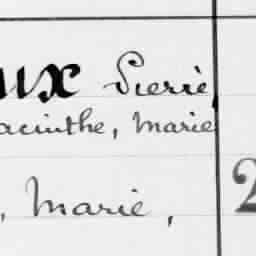 ux Pierre
acinthe, Marie
, Marie, 2